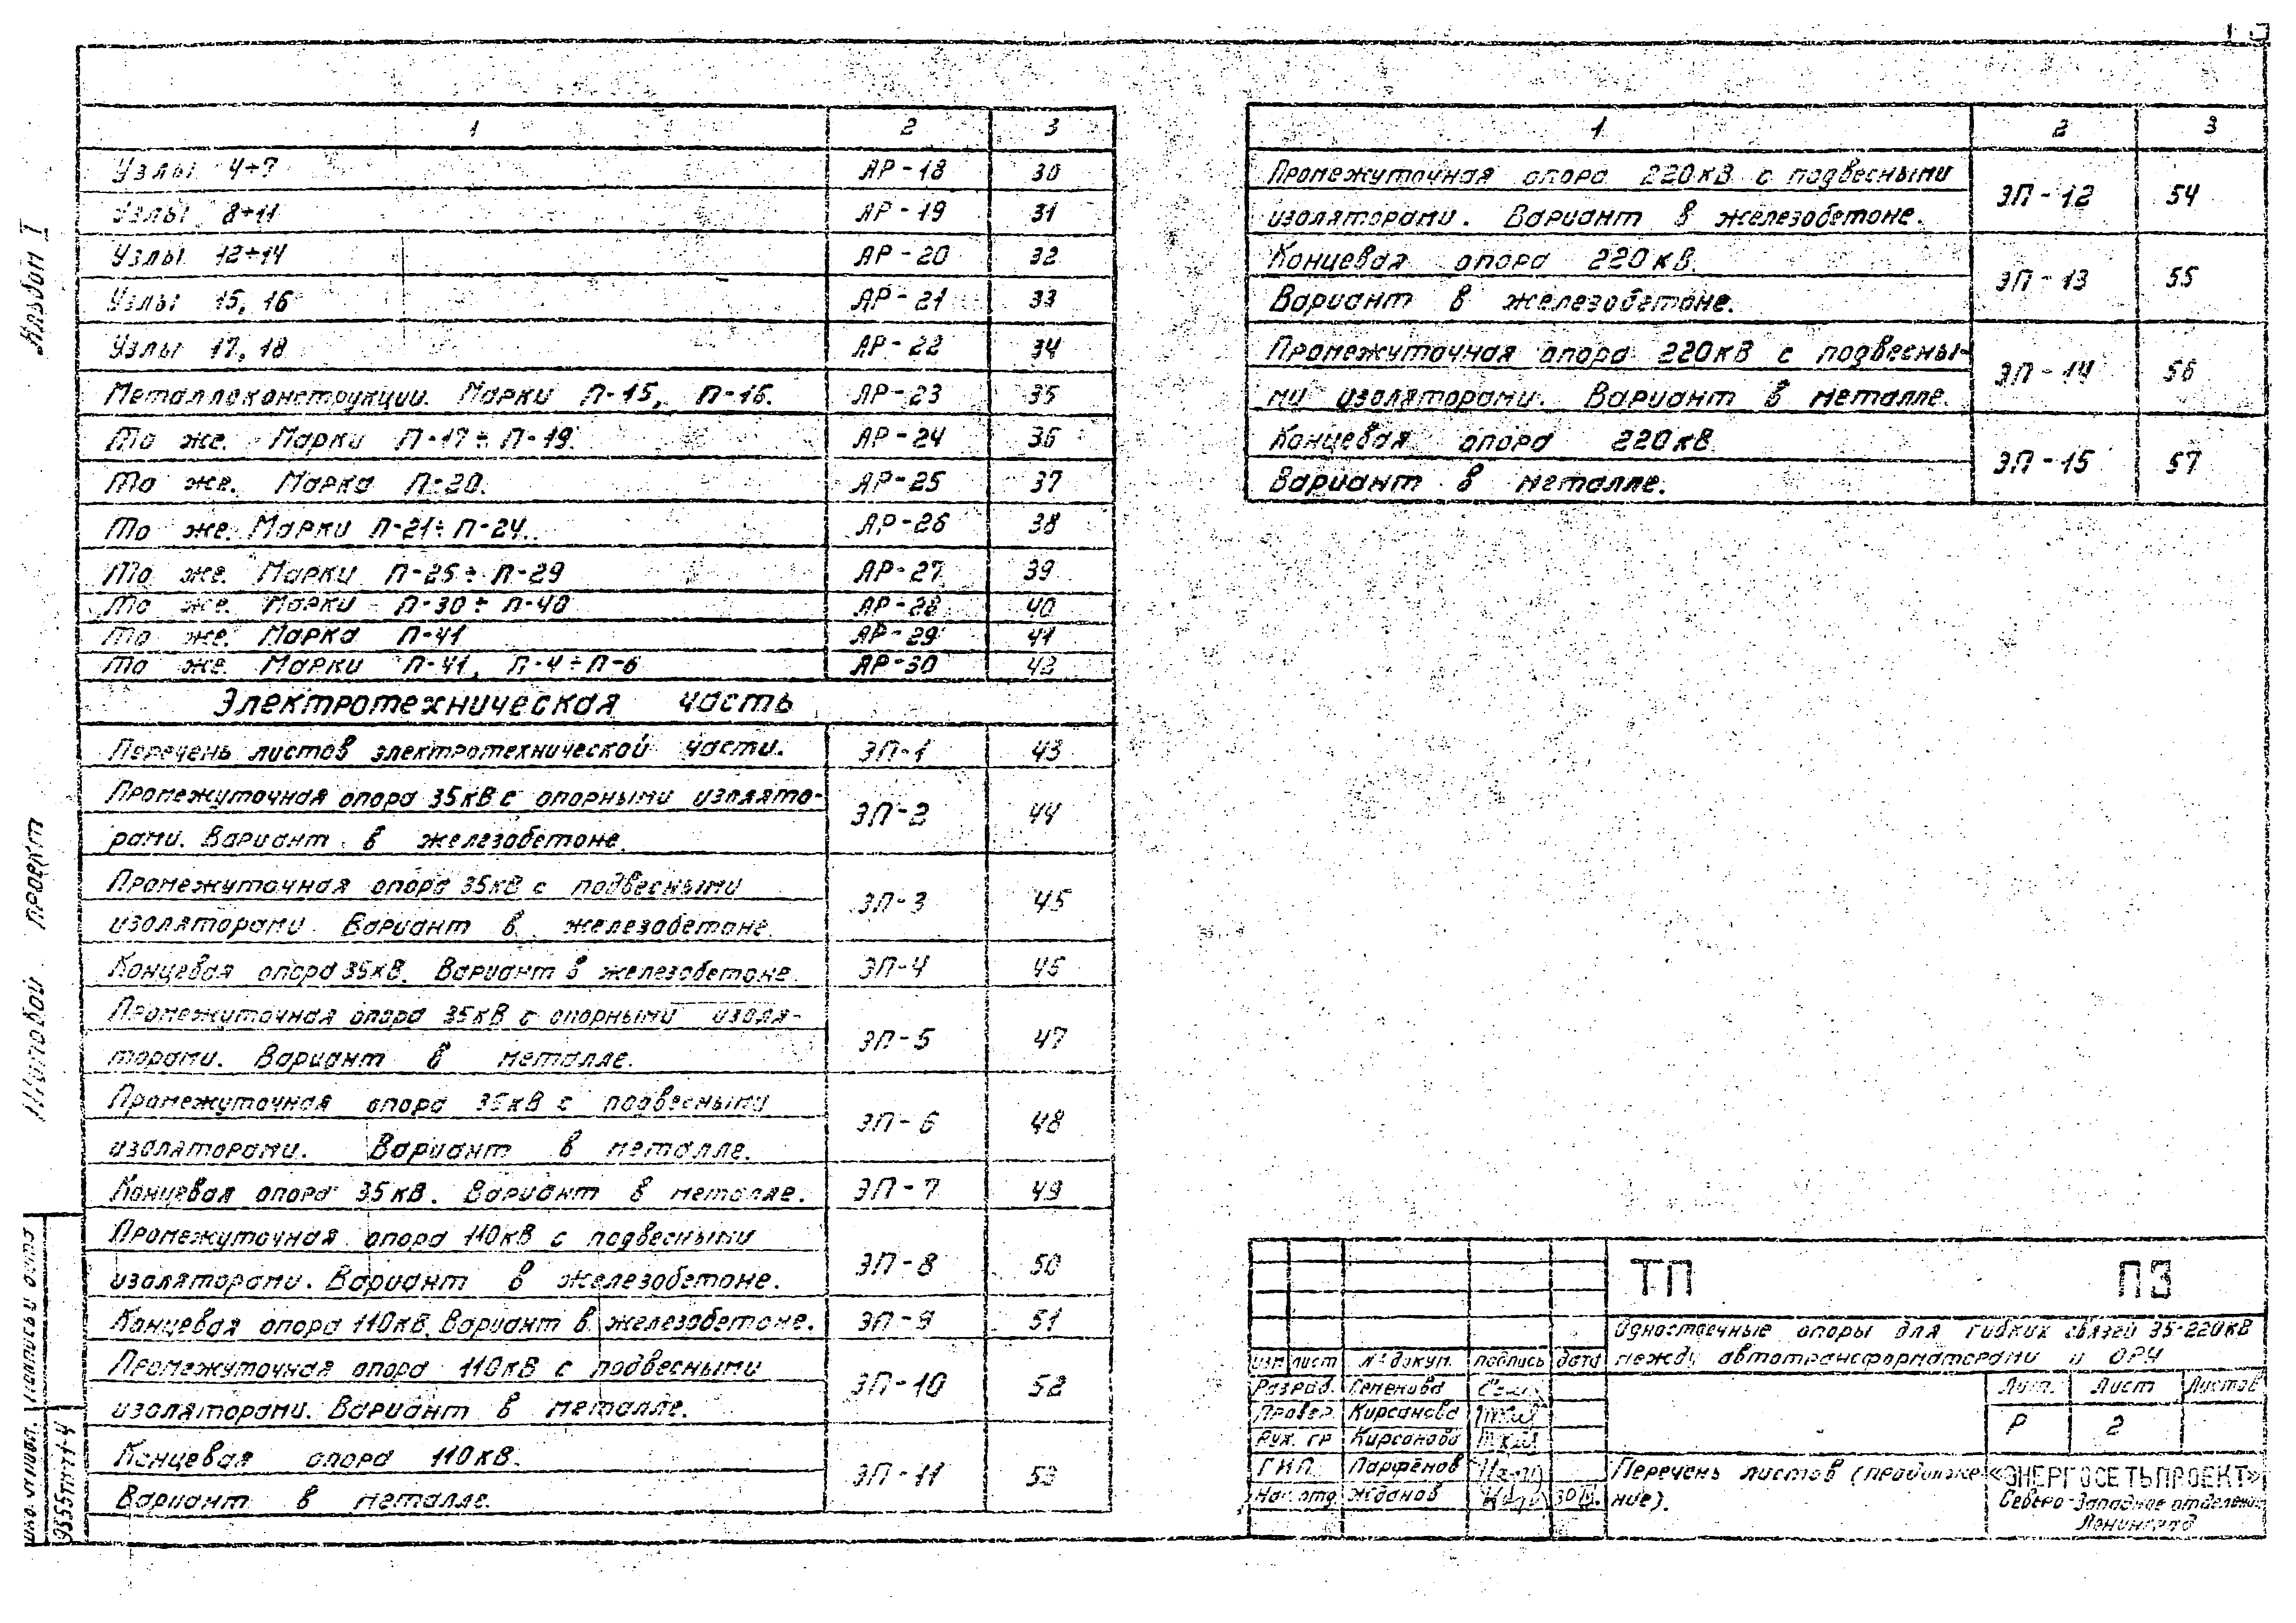 1 2 3
Узлы 4÷7 АР-18 30
Узлы 8÷11 АР-19 31
Узлы 12÷14 АР-20 32
Узлы 15, 16 АР-21 33
Узлы 17, 18 АР-22 34
Металлоконструкции. Марки П-15, П-16. АР-23 35
То же. Марки П-17÷П-19. АР-24 36
То же. Марка П-20. АР-25 37
То же. Марки П-21÷П-24. АР-26 38
То же. Марки П-25÷П-29 АР-27 39
То же. Марки П-30÷П-40 АР-28 40
То же. Марка П-41 АР-29 41
То же. Марки П-41, П-4÷П-6 АР-30 42
Электротехническая часть
Перечень листов электротехнической части. ЭП-1 43
Промежуточная опора 35кВ с опорными изолято-
рами. Вариант в железобетоне. ЭП-2 44
Промежуточная опора 35кВ с подвесными
изоляторами. Вариант в железобетоне. ЭП-3 45
Концевая опора 35кВ. Вариант в железобетоне. ЭП-4 46
Промежуточная опора 35кВ с опорными изоля-
торами. Вариант в металле. ЭП-5 47
Промежуточная опора 35кВ с подвесными
изоляторами. Вариант в металле. ЭП-6 48
Концевая опора 35кВ. Вариант в металле. ЭП-7 49
Промежуточная опора 110кВ с подвесными
изоляторами. Вариант в железобетоне. ЭП-8 50
Концевая опора 110кВ. Вариант в железобетоне. ЭП-9 51
Промежуточная опора 110кВ с подвесными
изоляторами. Вариант в металле. ЭП-10 52
Концевая опора 110кВ.
Вариант в металле. ЭП-11 53
1 2 3
Промежуточная опора 220кВ с подвесными
изоляторами. Вариант в железобетоне. ЭП-12 54
Концевая опора 220кВ.
Вариант в железобетоне. ЭП-13 55
Промежуточная опора 220кВ с подвесны-
ми изоляторами. Вариант в металле. ЭП-14 56
Концевая опора 220кВ
Вариант в металле. ЭП-15 57
Альбом I
Типовой проект
Подпись и дата
9555тм-т1-4
ТП ПЗ
Одностоечные опоры для гибких связей 35-220кВ
между автотрансформаторами и ОРУ
Изм лист № докум. подпись дата
Разраб.
Провер. Кирсанова
Рук. гр Кирсанова
ГИП Парфенов
Нач. отд Жданов
Лит. Лист Листов
Р 2
Перечень листов (продолже
ние).
«ЭНЕРГОСЕТЬПРОЕКТ»
Северо-Западное отделение
Ленинград